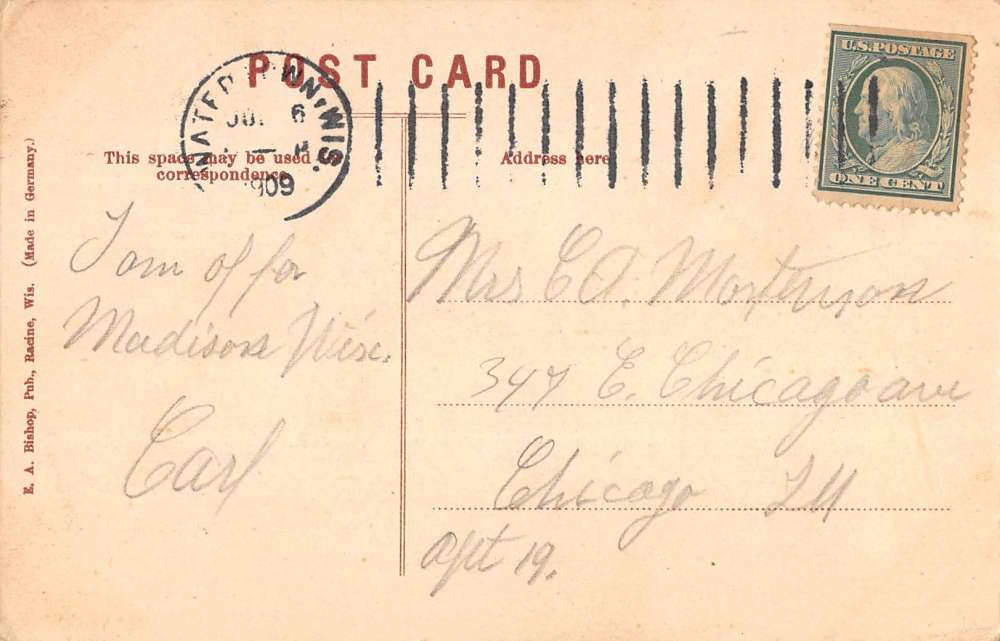 POST CARD
WATERTOWN, WIS.
6
1909
U.S. POSTAGE
ONE CENT
This space may be used
correspondence
Address here
I am of for
Madison Wisc.
Carl
Mrs C A. Mortenson
347 E. Chicago ave
Chicago Ill
apt 19.
E. A. Bishop, Pub., Racine, Wis. (Made in Germany.)